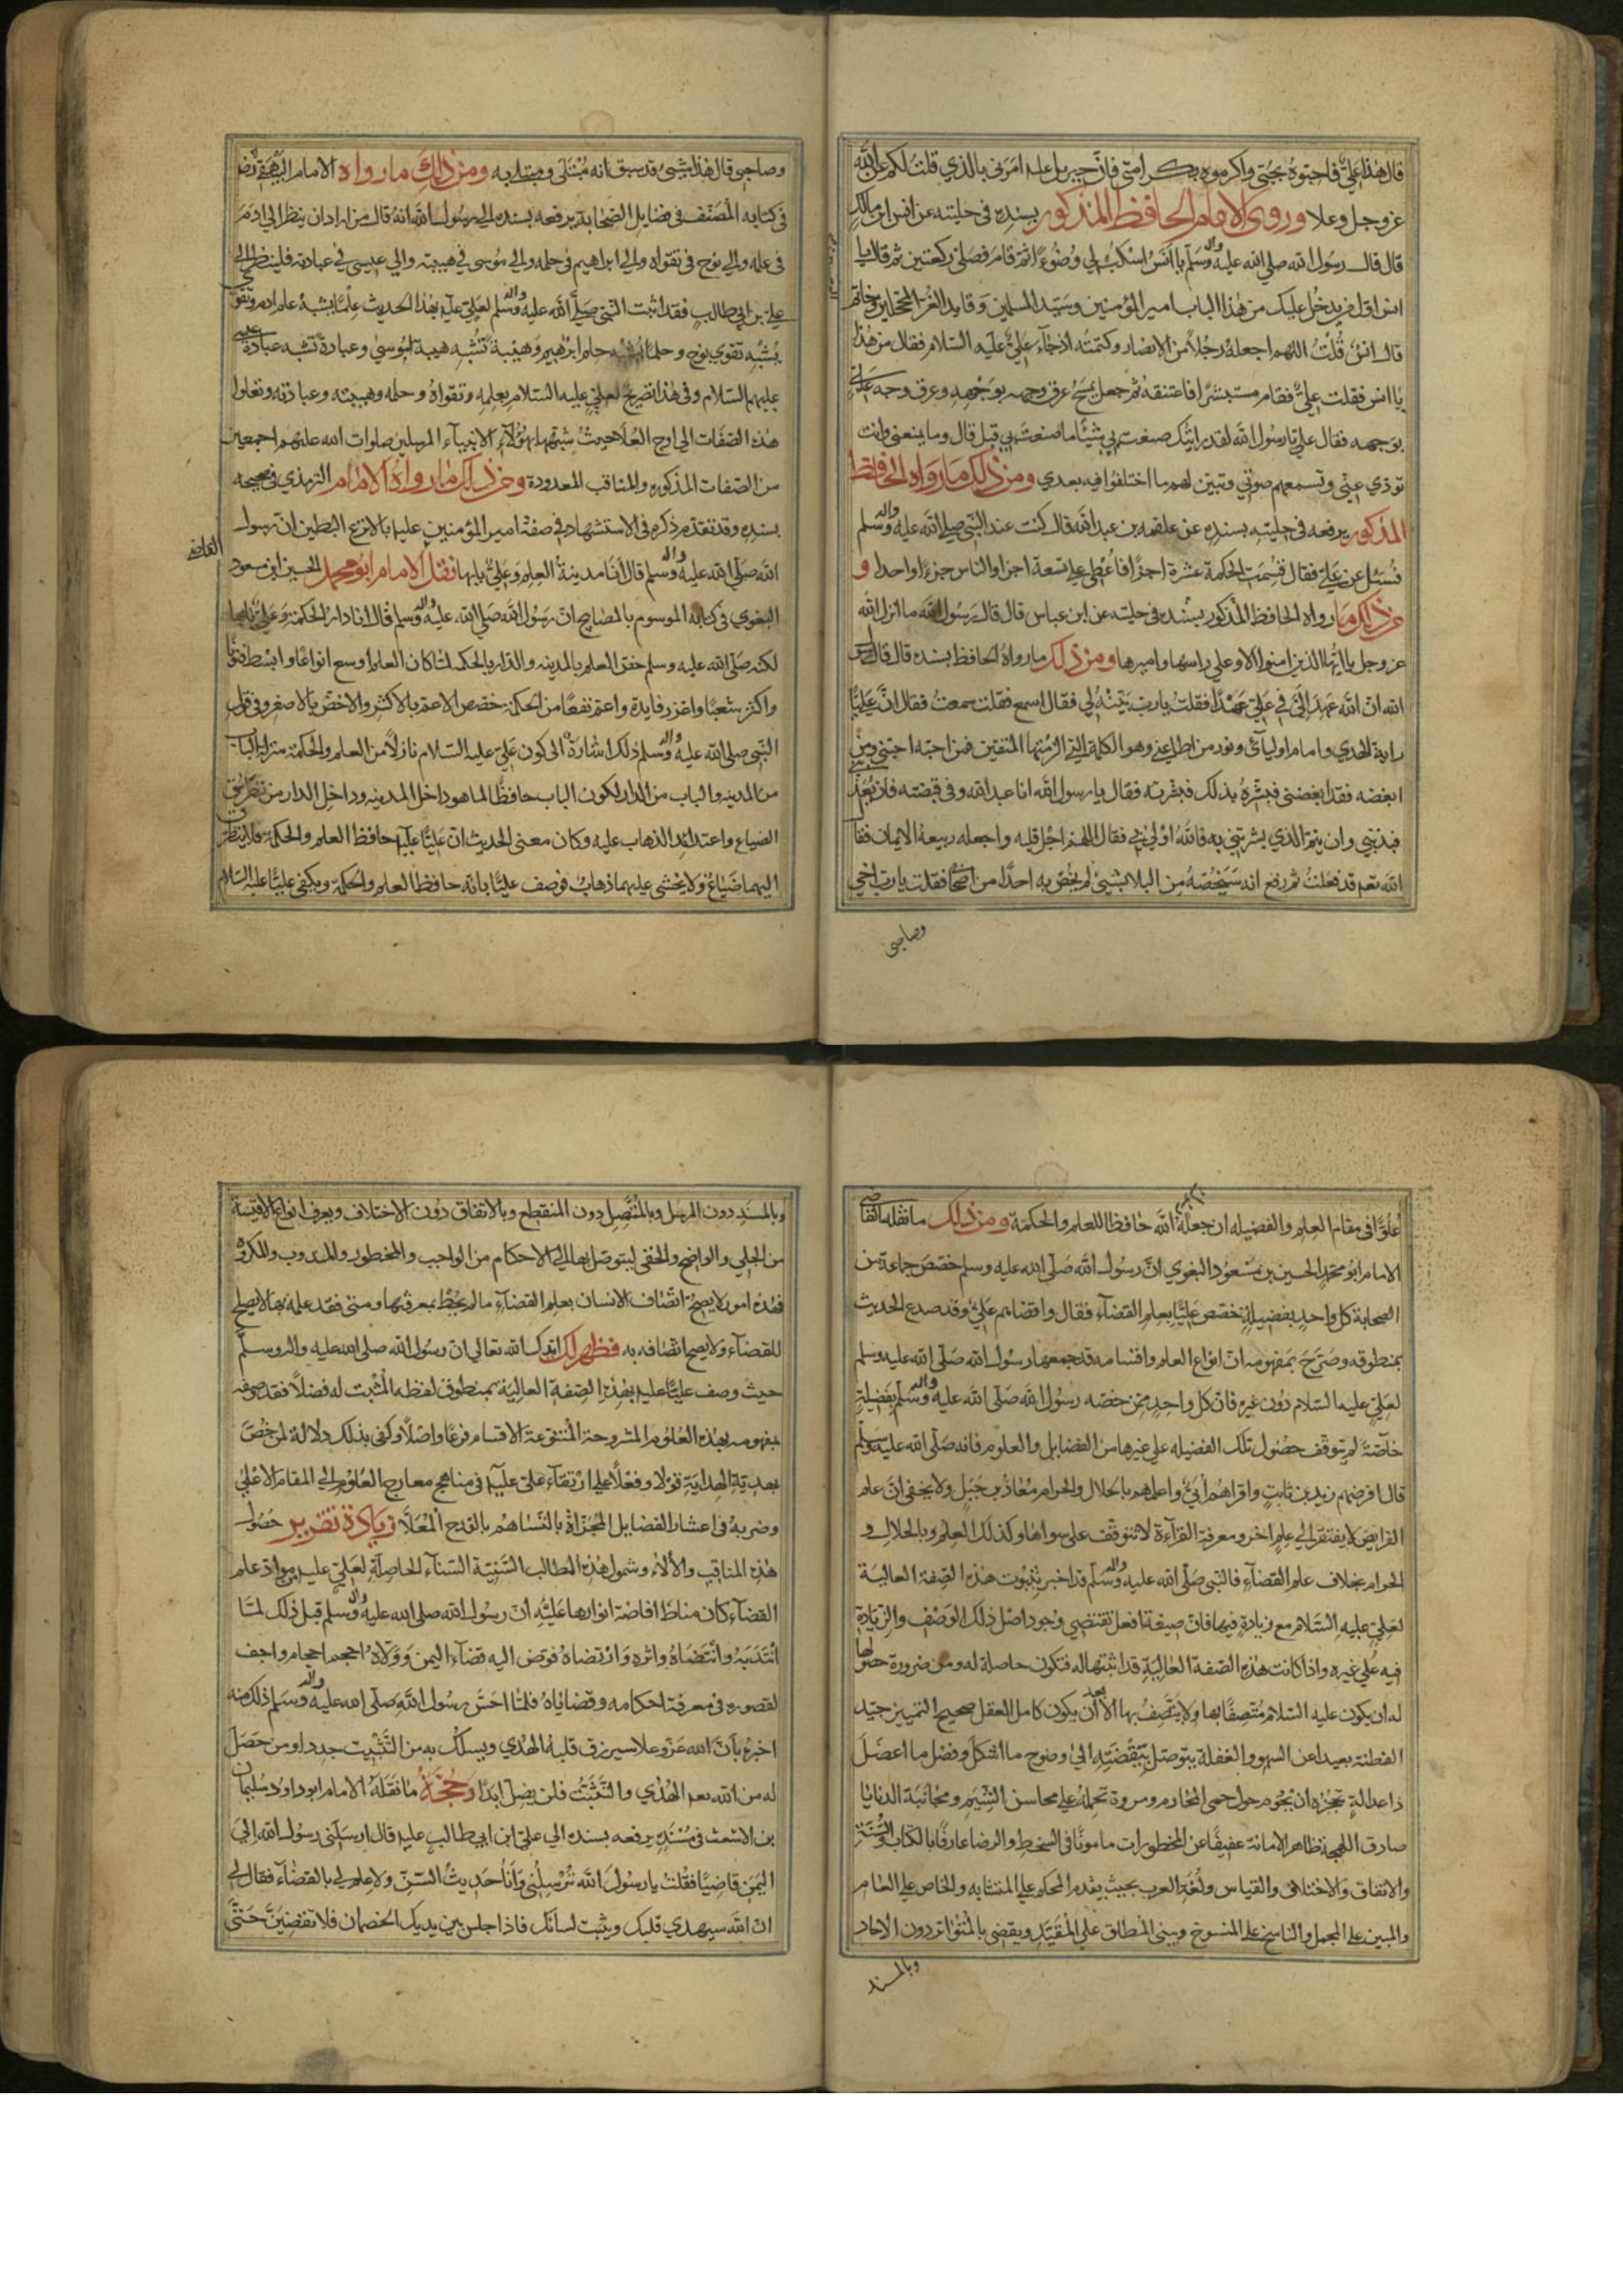 قال هذا علي فاحبوه بحبتي واكرموه بكرامتي فان جبريل عليه امرني بالذي قلت لكم عن الله
عز وجل وعلا وروى الامام الحافظ المذكور بسنده في حليته عن انس ابن مالك
قال قال رسول الله صلى الله عليه واله وسلم يا انس اسكب لي وضوءا ثم قام فصلى ركعتين ثم قال يا
انس اول من يدخل عليك من هذا الباب امير المؤمنين وسيد المسلمين وقايد الغر المحجلين وخاتم
قال انس قلت اللهم اجعله رجلا من الانصار وكتمته اذ جاء علي عليه السلام فقال من هذا
يا انس فقلت علي فقام مستبشرا فاعتنقه ثم جعل يمسح عرق وجهه بوجهه وعرق وجه علي
بوجهه فقال علي يا رسول الله لقد رايتك صنعت بي شيئا ما صنعت بي قبل قال وما يمنعني وانت
تودي عني وتسمعهم صوتي وتبين لهم ما اختلفوا فيه بعدي ومن ذلك ما رواه الحافظ
المذكور يرفعه في حليته بسنده عن علقمه بن عبد الله قال كنت عند النبي صلى الله عليه واله وسلم
فسئل عن علي فقال قسمت الحكمة عشرة اجزا فاعطي علي تسعة اجزا والناس جزءا واحدا و
من ذلك ما رواه الحافظ المذكور بسنده في حليته عن ابن عباس قال قال رسول الله ما انزل الله
عز وجل يا ايها الذين امنوا الا وعلي راسها واميرها ومن ذلك ما رواه الحافظ بسنده قال قال رسول
الله ان الله عهد الي في علي عهدا فقلت يا رب بينه لي فقال اسمع فقلت سمعت فقال ان عليا
راية الهدي وامام اوليائي ونور من اطاعني وهو الكلمة التي الزمتها المتقين فمن احبه احبني ومن
ابغضه فقد ابغضني فبشره بذلك فبشرته فقال يا رسول الله انا عبد الله وفي قبضته فان يعذبني
فبذنبي وان يتم الذي بشرتني به فالله اولى بي فقال اللهم اجل قلبه واجعله ربيعة الايمان فقا
الله نعم قد فعلت ثم رفع انه سيخصه من البلا بشيئ لم يخص به احدا من اصحابي فقلت يا رب اخي
وصاحبي
وصاحبي قال هذا شيئ قد سبق انه مبتلى ومبتلى به ومن ذلك ما رواه الامام البيهقي رضي
في كتابه المصنف في فضايل الصحابة يرفعه بسنده الى رسول الله انه قال من اراد ان ينظر الى ادم
في علمه والى نوح في تقواه والى ابراهيم في حلمه والى موسى في هيبته والى عيسى في عبادته فلينظر الى
علي بن ابي طالب فقد اثبت النبي صلى الله عليه واله وسلم لعلي عليه بهذا الحديث علما يشبه علم ادم وتقوى
يشبه تقوى نوح وحلما يشبه حلم ابرهيم وهيبة تشبه هيبة موسى وعبادة تشبه عبادة عيسى
عليهم السلام وفي هذا تصريح لعلي عليه السلام بعلمه وتقواه وحلمه وهيبته وعبادته وتعلوا
هذه الصفات الى اوج العلا حيث شبهها بهؤلاء الانبياء المرسلين صلوات الله عليهم اجمعين
من الصفات المذكورة والمناقب المعدودة ومن ذلك ما رواه الامام الترمذي في صحيحه
بسنده وقد تقدم ذكره في الاستشهاد في صفة امير المؤمنين عليه بالانزع البطين ان رسول
الله صلى الله عليه واله وسلم قال انا مدينة العلم وعلي بابها نقل الامام ابو محمد الحسين ابن مسعود
القاضي
البغوي في كتابه الموسوم بالمصابيح ان رسول الله صلى الله عليه واله وسلم قال انا دار الحكمة وعلي بابها
لكنه صلى الله عليه وسلم خص العلم بالمدينه والدار بالحكمه لما كان العلم اوسع انواعا وابسط فنونا
واكثر شعبا واغزر فايدة واعم نفعا من الحكمة خصص الاعم بالاكثر والاخص بالاصغر وفي قول
النبي صلى الله عليه واله وسلم ذلك اشارة الى كون علي عليه السلام نازلا من العلم والحكمة منزلة الباب
من المدينه والباب من الدار لكون الباب حافظا لما هو داخل المدينه وداخل الدار من تطرق
الضياع واعتداء الذهاب عليه وكان معنى الحديث ان عليا عليه حافظ العلم والحكمة فلا يتطرق
اليهما ضياع ولا يخشى عليهما ذهاب فوصف عليا بانه حافظ العلم والحكمة ويكفي عليا عليه السلام
علوا في مقام العلم والفضيله ان جعله الله حافظا للعلم والحكمة ومن ذلك ما نقله القاضي
الامام ابو محمد الحسين بن مسعود البغوي ان رسول الله صلى الله عليه وسلم خصص جماعة من
الصحابة كل واحد بفضيلة خصص عليا بعلم القضاء فقال واقضاهم علي وقد صدع الحديث
بمنطوقه وصرح بمفهومه ان انواع العلم واقسامه قد جمعها رسول الله صلى الله عليه وسلم
لعلي عليه السلام دون غيره فان كل واحد ممن خصه رسول الله صلى الله عليه واله وسلم بفضيلة
خاصة لم تتوقف حصول تلك الفضيله على غيرها من الفضايل والعلوم فانه صلى الله عليه وسلم
قال افرضهم زيد بن ثابت واقراهم ابي واعلمهم بالحلال والحرام معاذ بن جبل ولا يخفى ان علم
الفرايض لا يفتقر الى علم اخر ومعرفة القراءة لا تتوقف على سواها وكذلك العلم بالحلال و
الحرام بخلاف علم القضاء فالنبي صلى الله عليه واله وسلم قد اخبر بثبوت هذه الصفة العالية
لعلي عليه السلام مع زيادة فيها فان صيغة افعل تقتضي وجود اصل ذلك الوصف والزيادة
فيه على غيره واذا كانت هذه الصفة العالية قد اثبتها له فتكون حاصلة له ومن ضرورة حصولها
له ان يكون عليه السلام متصفا بها ولا يتصف بها الا بعد ان يكون كامل العقل صحيح التمييز جيد
الفطنة بعيدا عن السهو والغفلة يتوصل بيقضته الى وضوح ما اشكل وفصل ما اعضل
ذا عدالة تحجزه ان يحوم حول حمى المحارم ومروة تحمله على محاسن الشيم ومجانبة الدنايا
صادق اللهجة ظاهر الامانة عفيفا عن المحظورات مامونا في السخط والرضا عارفا بالكتاب والسنة
والاتفاق والاختلاف والقياس ولغة العرب بحيث يقدم المحكم على المتشابه والخاص على العام
والمبين على المجمل والناسخ على المنسوخ ويبني المطلق على المقيد ويقضي بالمتواتر دون الاحاد
وبالمسند
وبالمسند دون المرسل وبالمتصل دون المنقطع وبالاتفاق دون الاختلاف ويعرف انواع الاقيسة
من الجلي والواضح والخفي ليتوصل بها الى الاحكام من الواجب والمحظور والمندوب والمكروه
فهذه امور لا يصح اتصاف الانسان بعلم القضاء ما لم يحط بمعرفتها ومتى فقد علمه بها لا يصلح
للقضاء ولا يصح اتصافه به فظهر لك ايدك الله تعالى ان رسول الله صلى الله عليه واله وسلم
حيث وصف عليا عليه بهذه الصفة العالية بمنطوق لفظه المثبت له فضلا فقد وصفه
بمفهومه بهذه العلوم المشروحة المتنوعة الاقسام فرعا واصلا وكفى بذلك دلالة لمن خص
بهدية الهداية قولا وفعلا على ارتقاء علي عليه في مناهج معارج العلوم الى المقام الاعلى
وضربه في اعشار الفضايل المجزاة بالتساهم بالقدح المعلا زيادة تقرير حصول
هذه المناقب والالاء وشمول هذه المطالب السنية السناء الحاصلة لعلي عليه من مواد علم
القضاء كان مناط افاضة انوارها عليه ان رسول الله صلى الله عليه واله وسلم قبل ذلك لما
انتدبه وانتضاه واثره وارتضاه فوض اليه قضاء اليمن وولاه احجم احجام واجف
لقصوره في معرفة احكامه وقضاياه فلما احس رسول الله صلى الله عليه واله وسلم ذلك منه
اخبره بان الله عز وعلا سيرزق قلبه الهدي ويسلك به من التثبيت جددا ومن حصل
له من الله نعم الهدي والتثبت فلن يضل ابدا وحجة ما نقله الامام ابو داود سليمان
بن الاشعث في مسنده يرفعه بسنده الى علي ابن ابي طالب عليه قال ارسلني رسول الله الى
اليمن قاضيا فقلت يا رسول الله ترسلني وانا حديث السن ولا علم لي بالقضاء فقال لي
ان الله سيهدي قلبك ويثبت لسانك فاذا جلس بين يديك الخصمان فلا تقضين حتى